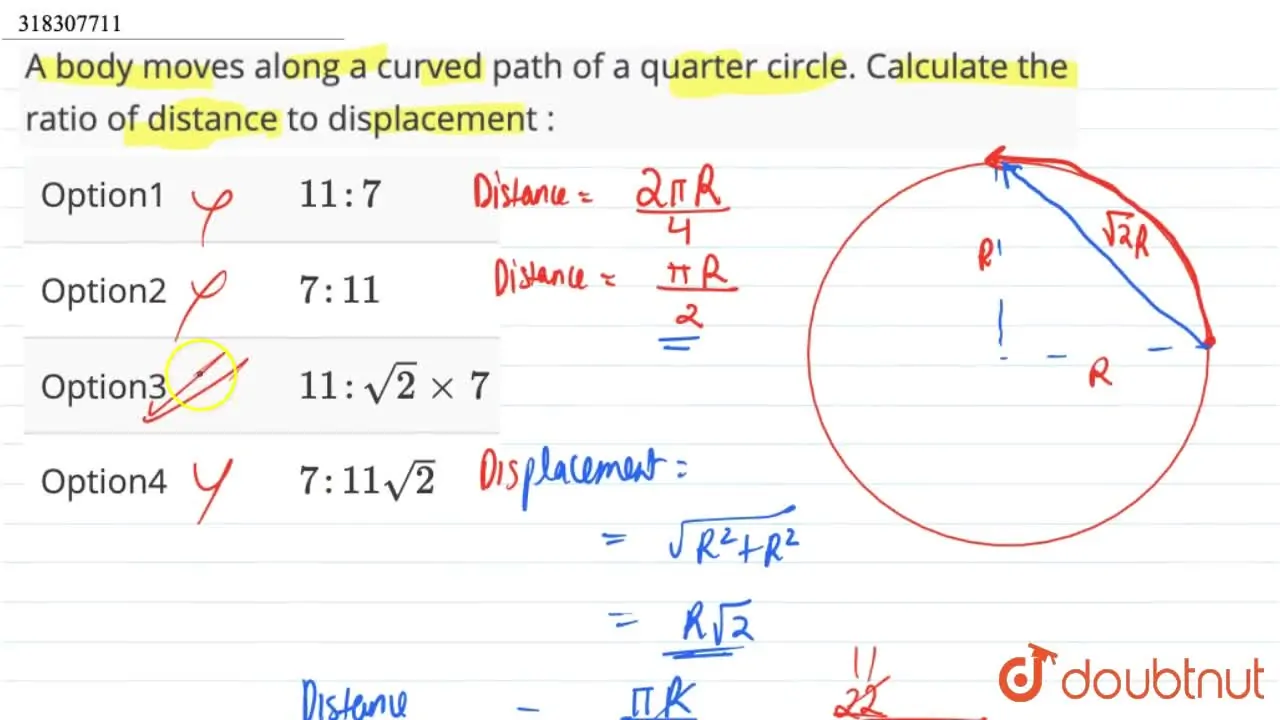 318307711
A body moves along a curved path of a quarter circle. Calculate the
ratio of distance to displacement :
Option1 11 : 7
Option2 7 : 11
Option3 11 : √2 × 7
Option4 7 : 11√2
Distance = 2πR/4
Distance = πR/2
√2R
R
R
Displacement =
= √R²+R²
= R√2
Distance = πR 11 22
doubtnut